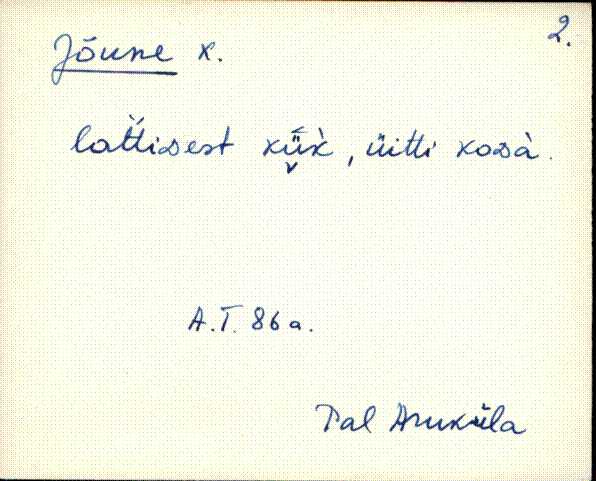 2.
Jõune k.
lattisest küik, üitti kosà.
A.T. 86 a.
Pal Aruküla